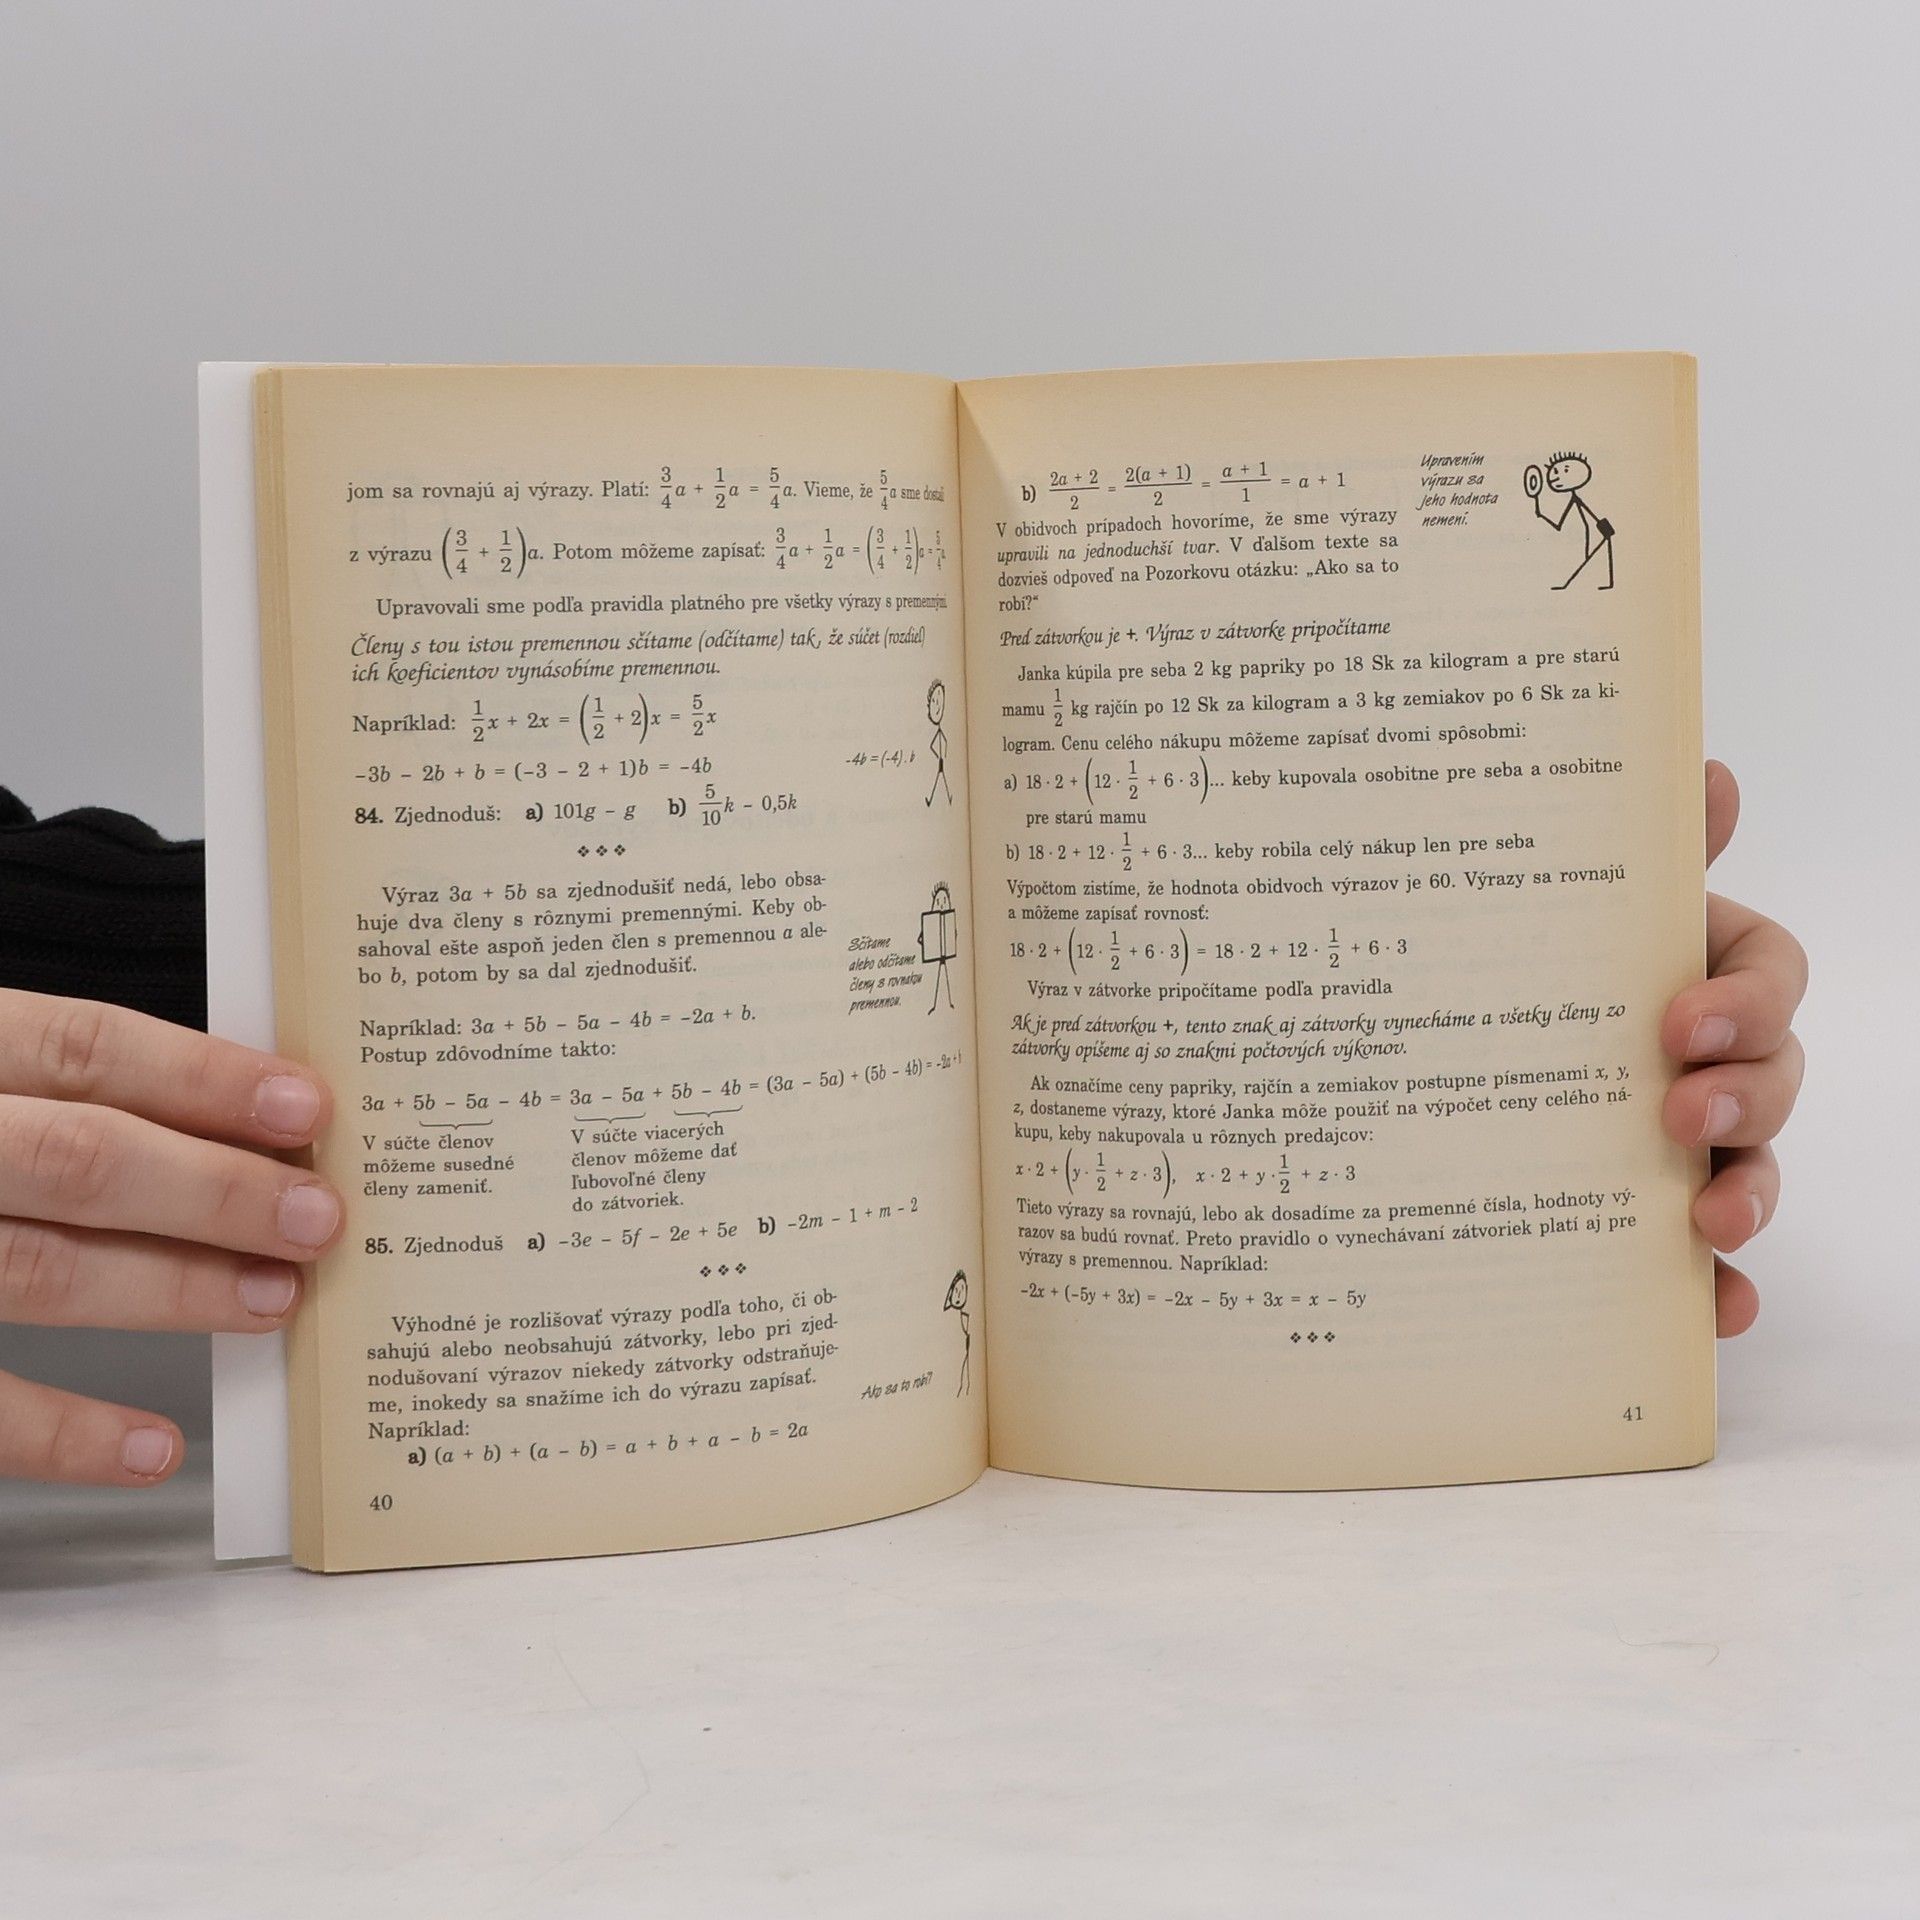 jom sa rovnajú aj výrazy. Platí: 3/4 a + 1/2 a = 5/4 a. Vieme, že 5/4 a sme dostali
z výrazu (3/4 + 1/2)a. Potom môžeme zapísať: 3/4 a + 1/2 a = (3/4 + 1/2)a = 5/4 a
Upravovali sme podľa pravidla platného pre všetky výrazy s premennými.
Členy s tou istou premennou sčítame (odčítame) tak, že súčet (rozdiel)
ich koeficientov vynásobíme premennou.
Napríklad: 1/2 x + 2x = (1/2 + 2)x = 5/2 x
-3b - 2b + b = (-3 - 2 + 1)b = -4b
-4b = (-4) . b
84. Zjednoduš: a) 101g - g b) 5/10 k - 0,5k
❖ ❖ ❖
Výraz 3a + 5b sa zjednodušiť nedá, lebo obsa-
huje dva členy s rôznymi premennými. Keby ob-
sahoval ešte aspoň jeden člen s premennou a ale-
bo b, potom by sa dal zjednodušiť.
Sčítame
alebo odčítame
členy s rovnakou
premennou.
Napríklad: 3a + 5b - 5a - 4b = -2a + b.
Postup zdôvodníme takto:
3a + 5b - 5a - 4b = 3a - 5a + 5b - 4b = (3a - 5a) + (5b - 4b) = -2a + b
V súčte členov
môžeme susedné
členy zameniť.
V súčte viacerých
členov môžeme dať
ľubovoľné členy
do zátvoriek.
85. Zjednoduš a) -3e - 5f - 2e + 5e b) -2m - 1 + m - 2
❖ ❖ ❖
Výhodné je rozlišovať výrazy podľa toho, či ob-
sahujú alebo neobsahujú zátvorky, lebo pri zjed-
nodušovaní výrazov niekedy zátvorky odstraňuje-
me, inokedy sa snažíme ich do výrazu zapísať.
Ako sa to robí?
Napríklad:
a) (a + b) + (a - b) = a + b + a - b = 2a
40
b) (2a + 2)/2 = 2(a + 1)/2 = (a + 1)/1 = a + 1
Upravením
výrazu sa
jeho hodnota
nemení.
V obidvoch prípadoch hovoríme, že sme výrazy
upravili na jednoduchší tvar. V ďalšom texte sa
dozvieš odpoveď na Pozorkovu otázku: „Ako sa to
robí?“
Pred zátvorkou je +. Výraz v zátvorke pripočítame
Janka kúpila pre seba 2 kg papriky po 18 Sk za kilogram a pre starú
mamu 1/2 kg rajčín po 12 Sk za kilogram a 3 kg zemiakov po 6 Sk za ki-
logram. Cenu celého nákupu môžeme zapísať dvomi spôsobmi:
a) 18 · 2 + (12 · 1/2 + 6 · 3)... keby kupovala osobitne pre seba a osobitne
pre starú mamu
b) 18 · 2 + 12 · 1/2 + 6 · 3... keby robila celý nákup len pre seba
Výpočtom zistíme, že hodnota obidvoch výrazov je 60. Výrazy sa rovnajú
a môžeme zapísať rovnosť:
18 · 2 + (12 · 1/2 + 6 · 3) = 18 · 2 + 12 · 1/2 + 6 · 3
Výraz v zátvorke pripočítame podľa pravidla
Ak je pred zátvorkou +, tento znak aj zátvorky vynecháme a všetky členy zo
zátvorky opíšeme aj so znakmi počtových výkonov.
Ak označíme ceny papriky, rajčín a zemiakov postupne písmenami x, y,
z, dostaneme výrazy, ktoré Janka môže použiť na výpočet ceny celého ná-
kupu, keby nakupovala u rôznych predajcov:
x · 2 + (y · 1/2 + z · 3), x · 2 + y · 1/2 + z · 3
Tieto výrazy sa rovnajú, lebo ak dosadíme za premenné čísla, hodnoty vý-
razov sa budú rovnať. Preto pravidlo o vynechávaní zátvoriek platí aj pre
výrazy s premennou. Napríklad:
-2x + (-5y + 3x) = -2x - 5y + 3x = x - 5y
❖ ❖ ❖
41